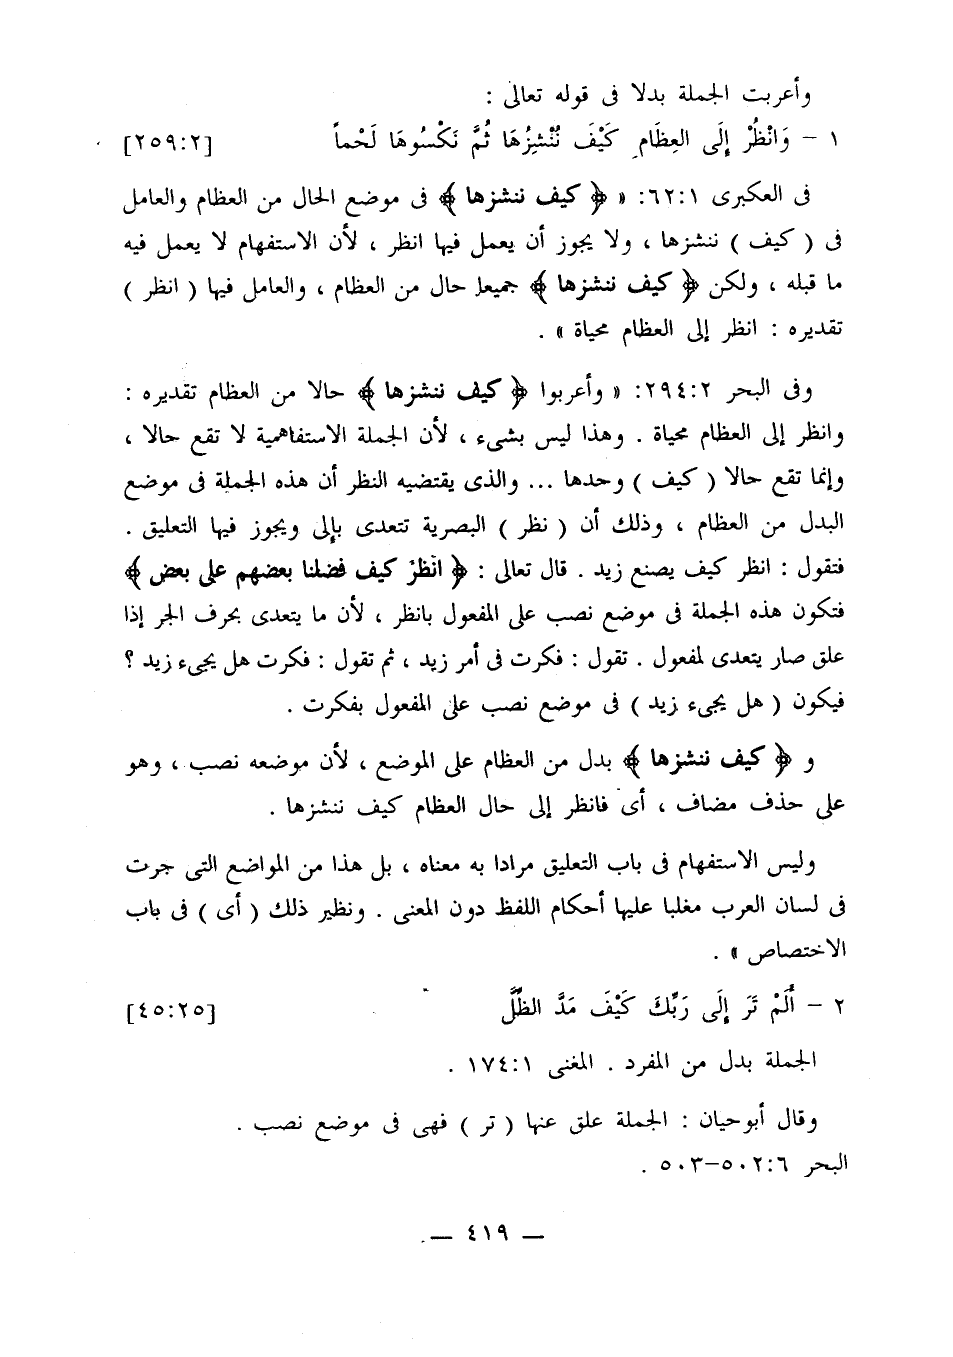 وأعربت الجملة بدلا فى قوله تعالى :
١ – وَانْظُرْ إِلَى العِظَامِ كَيْفَ نُنْشِزُهَا ثُمَّ نَكْسُوهَا لَحْماً [٢٥٩:٢]
فى العكبرى ٦٢:١: « ﴿ كيف ننشزها ﴾ فى موضع الحال من العظام والعامل
فى ( كيف ) ننشزها ، ولا يجوز أن يعمل فيها انظر ، لأن الاستفهام لا يعمل فيه
ما قبله ، ولكن ﴿ كيف ننشزها ﴾ جميعا حال من العظام ، والعامل فيها ( انظر )
تقديره : انظر إلى العظام محياة » .
وفى البحر ٢٩٤:٢: « وأعربوا ﴿ كيف ننشزها ﴾ حالا من العظام تقديره :
وانظر إلى العظام محياة . وهذا ليس بشىء ، لأن الجملة الاستفاهمية لا تقع حالا ،
وإنما تقع حالا ( كيف ) وحدها ... والذى يقتضيه النظر أن هذه الجملة فى موضع
البدل من العظام ، وذلك أن ( نظر ) البصرية تتعدى بإلى ويجوز فيها التعليق .
فتقول : انظر كيف يصنع زيد . قال تعالى : ﴿ انْظرْ كيف فضلنا بعضهم على بعض ﴾
فتكون هذه الجملة فى موضع نصب على المفعول بانظر ، لأن ما يتعدى بحرف الجر إذا
علق صار يتعدى لمفعول . تقول : فكرت فى أمر زيد ، ثم تقول : فكرت هل يجىء زيد ؟
فيكون ( هل يجىء زيد ) فى موضع نصب على المفعول بفكرت .
و ﴿ كيف ننشزها ﴾ بدل من العظام على الموضع ، لأن موضعه نصب ، وهو
على حذف مضاف ، أى فانظر إلى حال العظام كيف ننشزها .
وليس الاستفهام فى باب التعليق مرادا به معناه ، بل هذا من المواضع التى جرت
فى لسان العرب مغلبا عليها أحكام اللفظ دون المعنى . ونظير ذلك ( أى ) فى باب
الاختصاص » .
٢ – أَلَمْ تَرَ إِلَى رَبِّكَ كَيْفَ مَدَّ الظِّلَّ [٤٥:٢٥]
الجملة بدل من المفرد . المغنى ١٧٤:١ .
وقال أبوحيان : الجملة علق عنها ( تر ) فهى فى موضع نصب .
البحر ٥٠٢:٦–٥٠٣ .
— ٤١٩ —